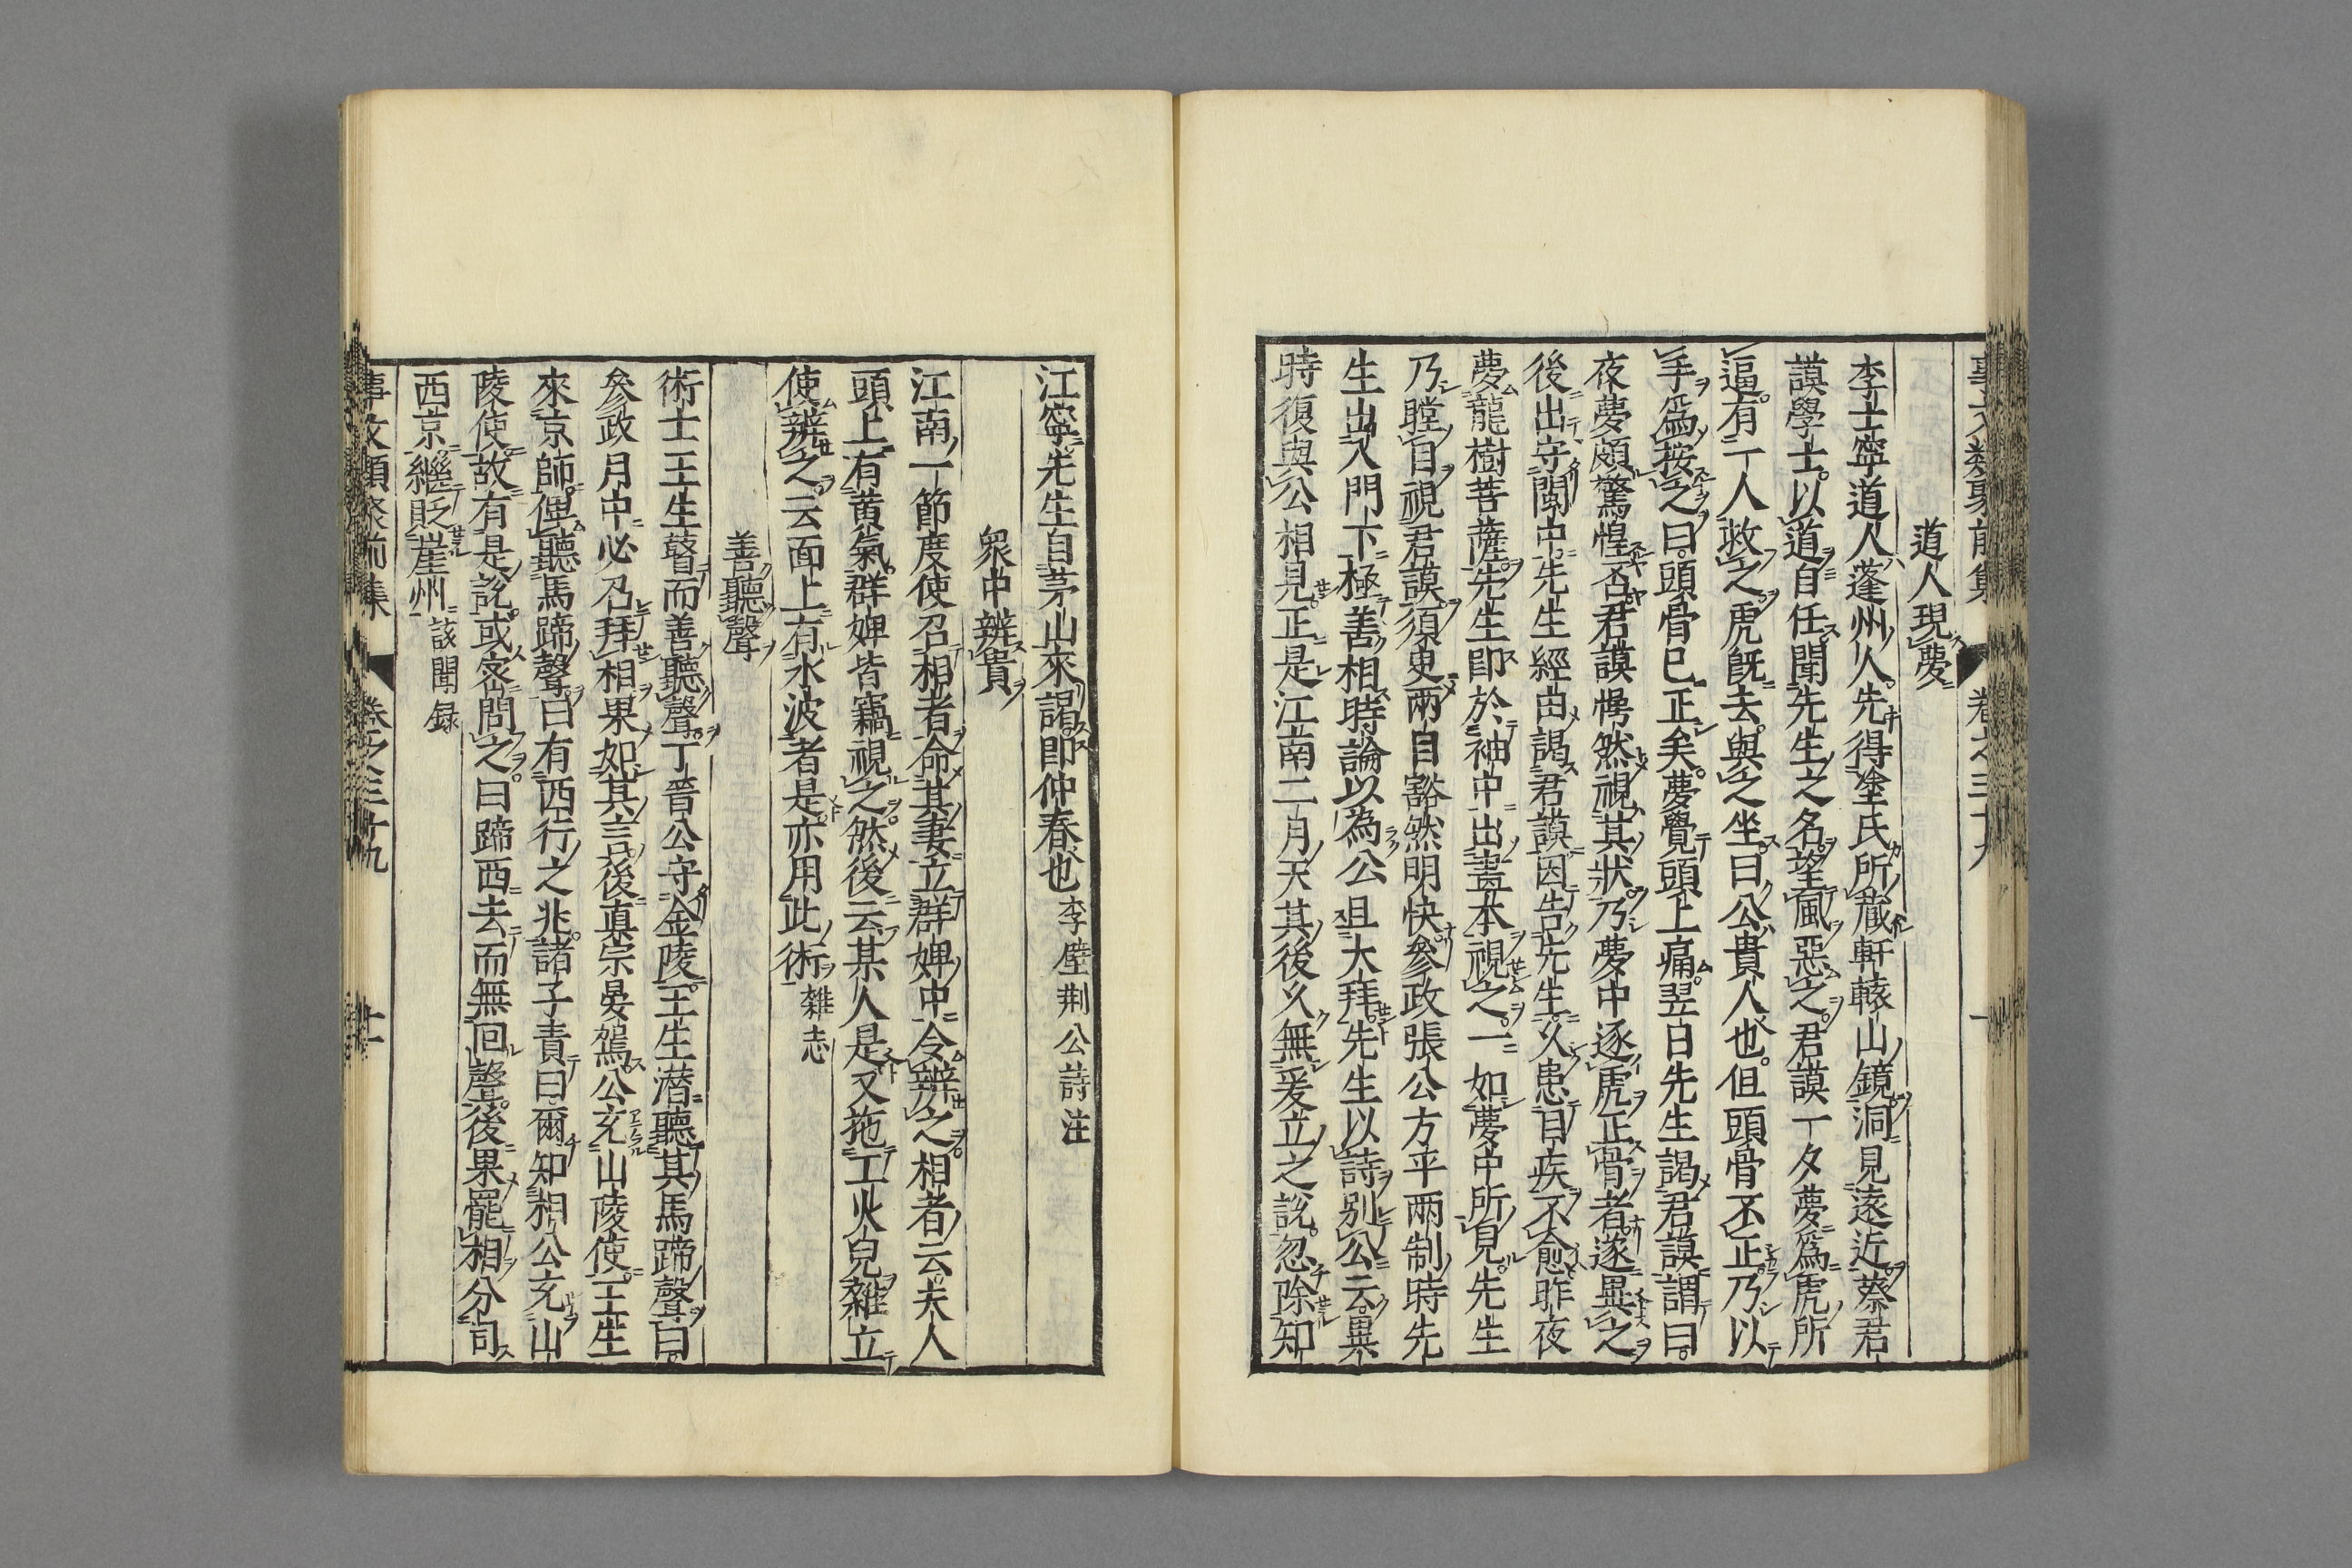 事文類聚前集 卷之三十九
道人現夢
李士寧道人蓬州人先得塗氏所藏軒轅山鏡洞見遠近蔡君
謨學士以道自任聞先生之名望風惡之君謨一夕夢爲虎所
逼有一人救之虎旣去與之坐曰公貴人也但頭骨不正乃以
手爲按之曰頭骨已正矣夢覺頭上痛翌日先生謁君謨謂曰
夜夢頗驚惶否君謨愕然視其狀乃夢中逐虎正骨者遂異之
後出守閩中先生經由謁君謨因告先生久患目疾不愈昨夜
夢龍樹菩薩先生即於袖中出畫本視之一如夢中所見先生
乃瞠目視君謨須臾兩目豁然明快參政張公方平兩制時先
生出入門下極善相時論以為公且大拜先生以詩別公云異
時復與公相見正是江南二月天其後久無爰立之說忽除知
江寧先生自茅山來謁即仲春也李壁荆公詩注
衆中辨貴
江南一節度使召相者命其妻立群婢中令辨之相者云夫人
頭上有黃氣群婢皆竊視之然後云某人是又拖工火兒雜立
使辨之云面上有水波者是亦用此術雜志
善聽聲
術士王生瞽而善聽聲丁晉公守金陵王生潛聽其馬蹄聲曰
參政月中必召拜相果如其言後真宗晏駕公充山陵使王生
來京師俾聽馬蹄聲曰有西行之兆諸子責曰爾知相公充山
陵使故有是說或密問之曰蹄西去而無回聲後果罷相分司
西京繼貶崖州該聞録
事文類聚前集 卷之三十九 十一